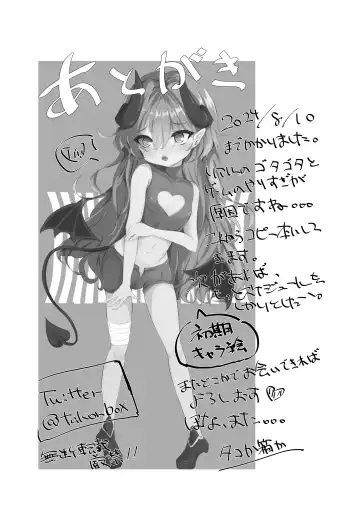 あとがき
2024/8/10
までかかりました。
リアルのゴタゴタと
ゲームのやりすぎが
原因ですね...
これからコピー本にして
きます。
次があれば、
もっとスケジュールを
しっかりとした〜い
初期
キャラ絵
またどこかでお会いできれば
よろしおす
ほな、また...
タコが箱か
Twitter
@takonbox
無断転載
厳禁!!